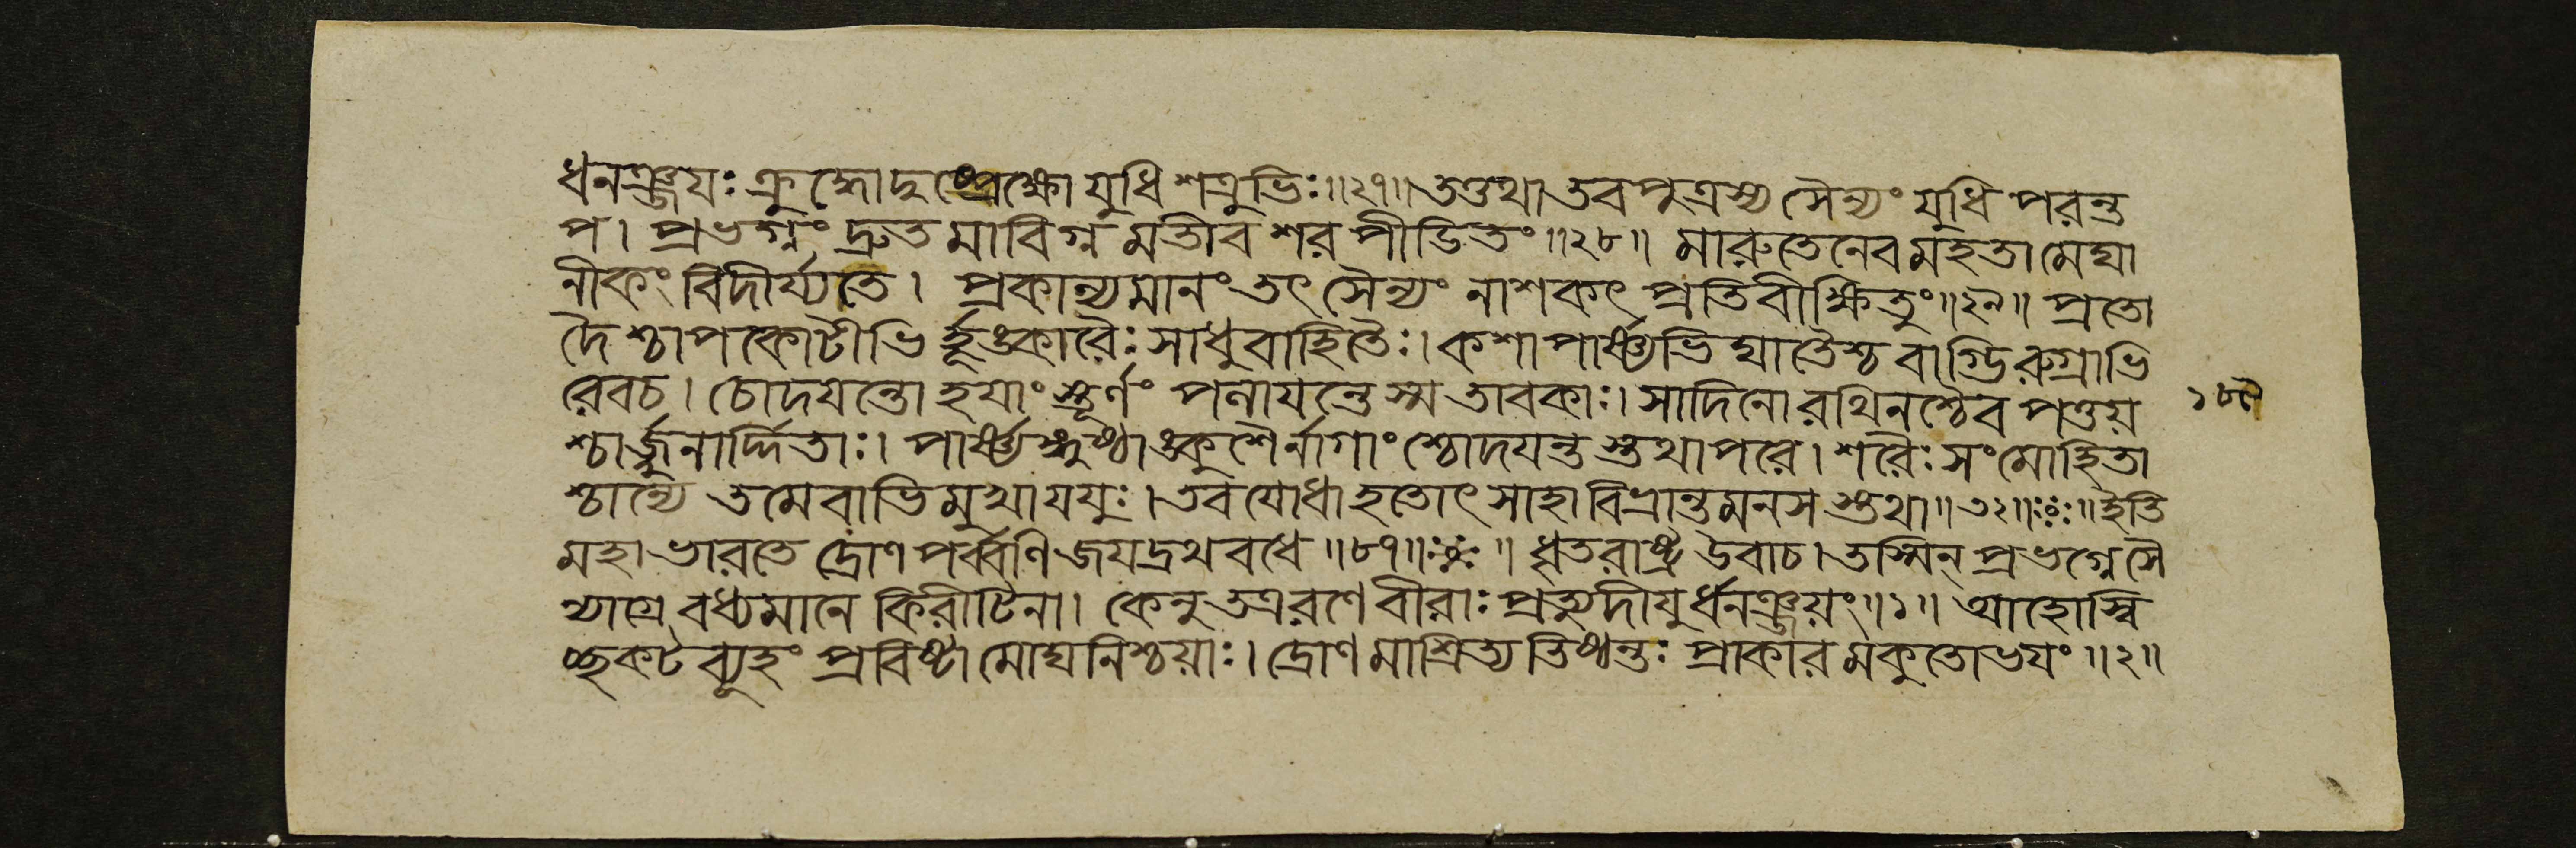 ধনঞ্জযঃ ক্রুদ্ধোদুষ্প্রেক্ষ্যো যুধি শত্রুভিঃ॥২৭॥ তত্তথা তব পুত্রস্য সৈন্যং যুধি পরন্ত
প। প্রভগ্নং দ্রুত মাবিগ্ন মতীব শর পীডিতং॥২৮॥ মারুতেনেব মহতা মেঘা
নীকং বিদীর্য্যতে। প্রকাল্যমানং তৎ সৈন্যং নাশকৎ প্রতিবীক্ষিতুং॥২৯॥ প্রতো
দৈশ্চাপকোটীভি র্হূঙ্কারৈঃ সাধুবাহিতৈঃ। কশাপার্ষ্ণ্যভিঘাতৈশ্চ বাগ্ভিরুগ্রাভি
রেবচ। চোদযন্তো হযাংস্তূর্ণং পলাযন্তে স্ম তাবকাঃ। সাদিনো রথিনশ্চৈব পত্তয়
শ্চার্জ্জুনার্দ্দিতাঃ। পার্ষ্ণ্যঙ্গুষ্ঠাঙ্কুশৈর্নাগাংশ্চোদযন্ত স্তথাপরে। শরৈঃ সংমোহিতা
শ্চান্যে তমেবাভিমুখা যযুঃ। তব যোধা হতোৎসাহা বিভ্রান্তমনস স্তথা॥৩২॥ঃ০ঃ॥ ইতি
মহাভারতে দ্রোণ পর্ব্বণি জযদ্রথবধে॥৮৭॥ঃ০ঃ॥ ধৃতরাষ্ট্র উবাচ। তস্মিন্ প্রভগ্নে সৈ
ন্যাগ্রে বধ্যমানে কিরীটিনা। কেনু তত্র রণে বীরাঃ প্রত্যুদীযুর্ধনঞ্জয়ং॥১॥ আহোস্বি
চ্ছকটব্যূহং প্রবিষ্টা মোঘনিশ্চয়াঃ। দ্রোণমাশ্রিত্য তিষ্ঠন্তঃ প্রাকার মকুতোভযং॥২॥